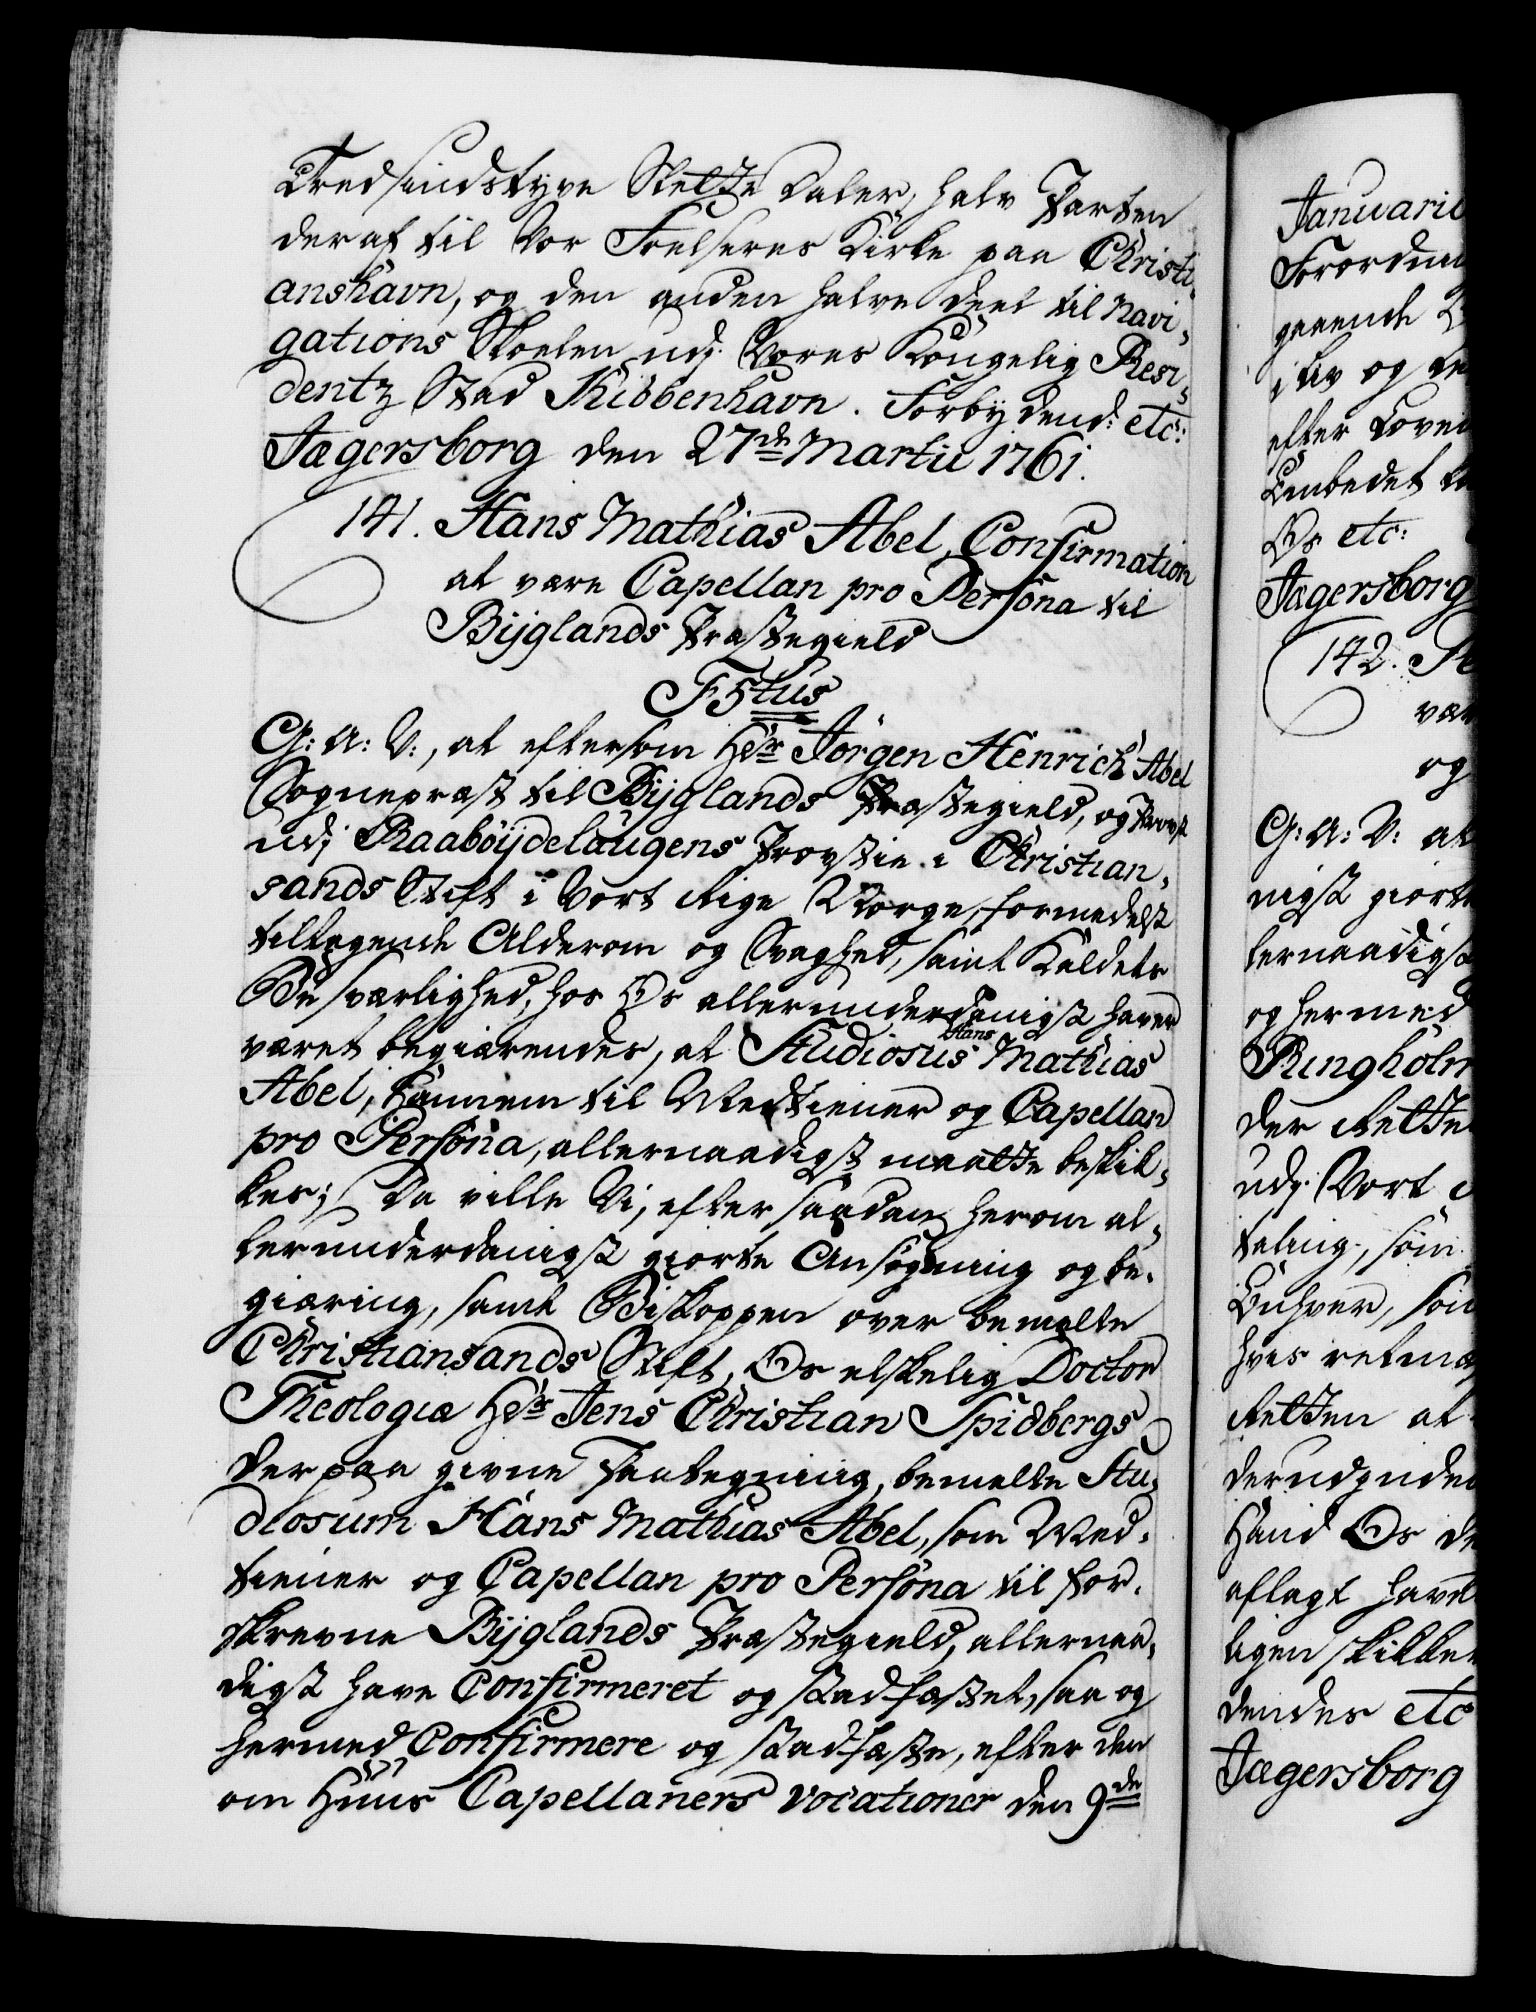 Tredsindstyve Slette Daler, halv Parten
deraf til Vor Frelseres Kirke paa Christi-
anshavn, og den anden halve deel til Navi-
gations Skolen udj Vores Kongelig Resi-
dentz Stad Kiøbbenhavn. Forbydend: etc:
Jægersborg den 27de Martii 1761.
141. Hans Mathias Abel, Confirmation
at være Capellan pro Persona til
Bijglands Præstegield
F5tus
G: A: V:, at eftersom Hr Jørgen Henrich Abel
Sognepræst til Bijglands Præstegield, og Provst
udj Raabøijdelaugens Provstie i Christian-
sands Stift i Vort Rige Norge, formedelst
tiltagende Alderom og Svaghed, samt Kaldets
Besværlighed, hos Os allerunderdanigst haver
været begiærendes, at Studiosus Hans Mathias
Abel, hannem til Medtiener og Capellan
pro Persona, allernaadigst maatte beskik-
kes; Da ville Vi, efter saadan herom al-
lerunderdanigst giorte Ansøgning og be-
giæring, samt Biskoppen over bemelte
Christiansands Stift, Os elskelig Doctor
Theologiæ Hr Jens Christian Spidbergs
derpaa givne Paategning, bemelte Stu-
diosum Hans Mathias Abel, som Med-
tiener og Capellan pro Persona til for-
skrevne Bijglands Præstegield, allernaa-
digst have Confirmeret og stadfæstet, saa og
hermed Confirmere og stadfæste, efter den
om Huus Capellaners vocationer den 9de
Januarii
Forord
gaaende
i
efter Loven
Embedet
Os etc:
Jægersborg
142.
vær
og
G: A: V: at
nigst giort
lernaadigst
og hermed
Ringholm
der Rette
udj Vort
taling, som
Enhver, som
hvis retmæ
Retten at
Haand Os de
aflagt have
ligen skikke
dendes etc
Jægersborg